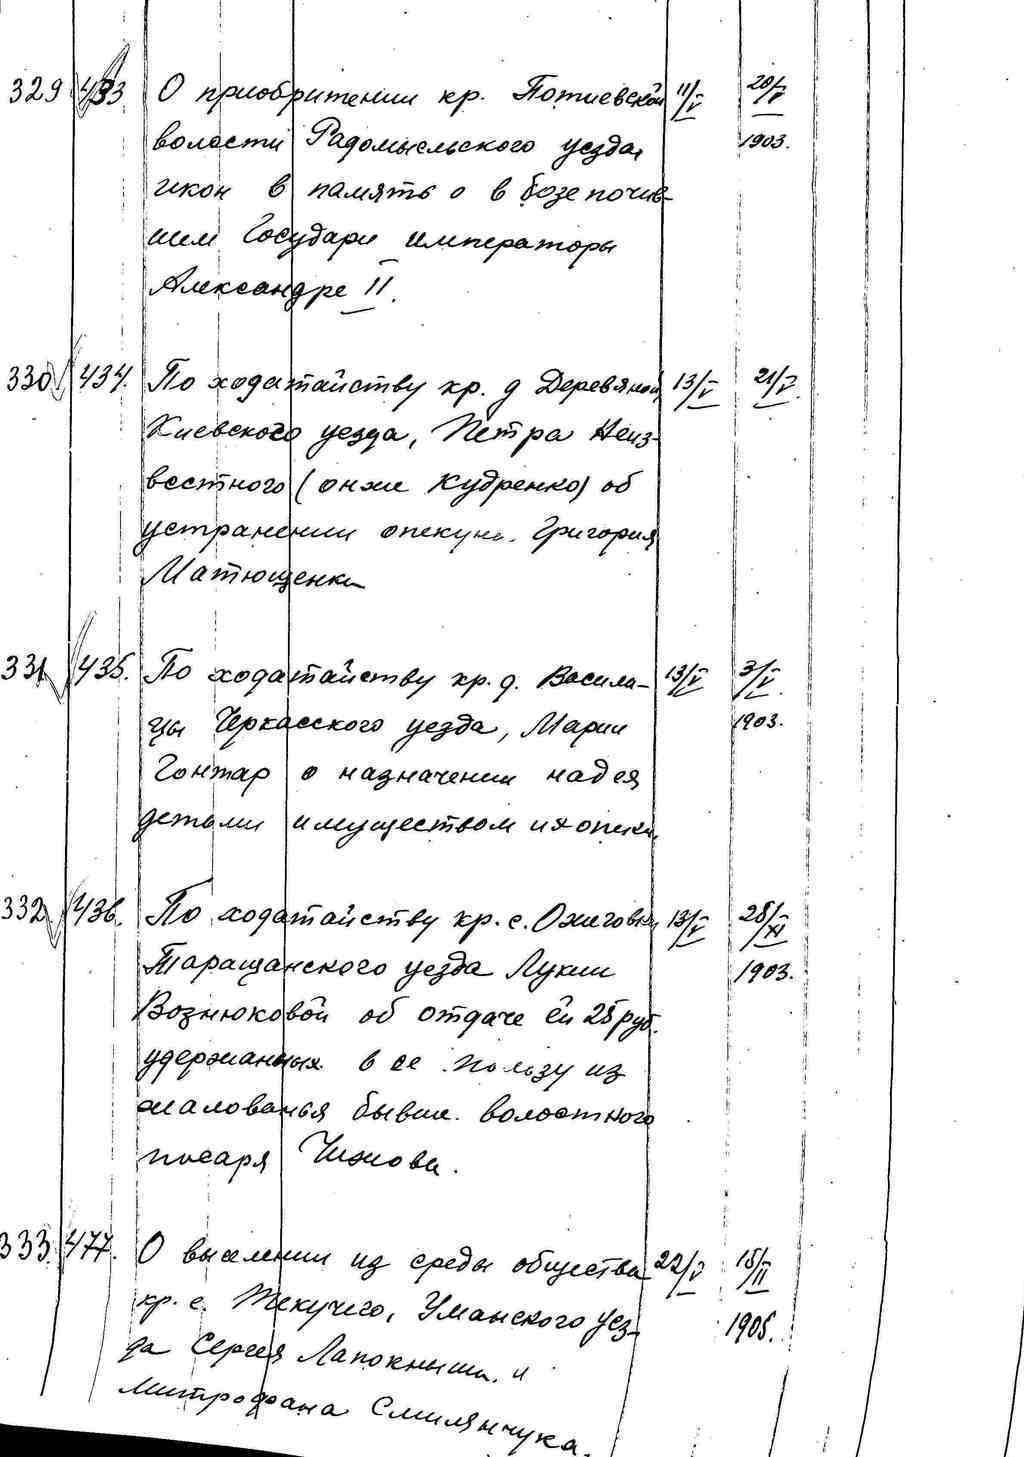 329 433 О приобритении кр. Потиевской 11/V 20/V
волости Радомысльского уезда, 1903.
икон в память о в бозе почив-
шем Государи императоры
Александре II.
330 434. По ходатайству кр. д Деревяной, 13/V 21/V.
Киевского уезда, Петра Неиз-
вестного (он же Кудренко) об
устранении опекуна. Григория
Матющенки
331 435. По ходатайству кр. д. Василь- 13/V 3/V.
цы Черкасского уезда, Марии 1903.
Гонтар о назначении над ея
детьми имуществом их опеки.
332 436. По ходатайству кр. с. Ожиговки 13/V 28/XI
Таращанского уезда Лукии 1903.
Вознюковой об отдаче ей 25 руб.
удержанных в ее пользу из
жалованья бывш. волостного
писаря Чижова.
333. 477. О выселении из среды общества 22/V 15/II
кр. с. Текучего, Уманского уез- 1905.
да Сергея Лапокныша. и
Митрофана Смилянчука.